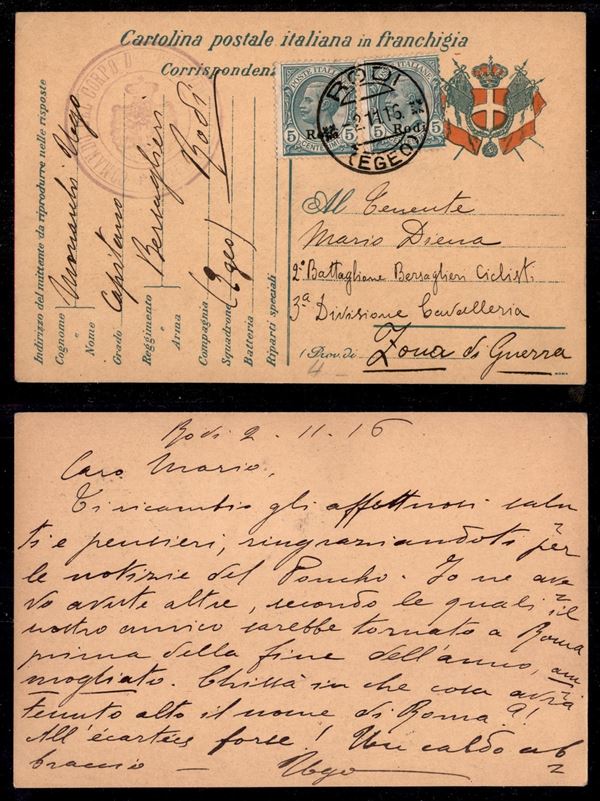 Cartolina postale italiana in franchigia
Corrispondenza
Indirizzo del mittente da riprodurre nelle risposte
Cognome
e
Nome
Ugo
Grado Capitano
Reggimento
e
Arma
Bersaglieri
Compagnia
Squadrone
Batteria
Rodi
(Egeo)
Riparti speciali
POSTE ITALIANE
5 5
CENTESIMI
Rodi
POSTE ITALIANE
5 5
CENTESIMI
Rodi
RODI
2.11.16
(EGEO)
Al Tenente
Mario Diena
2º Battaglione Bersaglieri Ciclisti
3ª Divisione Cavalleria
(Prov. di Zona di Guerra
4
Rodi 2-11-16
Caro Mario,
Ti ricambio gli affettuosi salu
ti e pensieri, ringraziandoti per
le notizie del Poncho. Io ne ave
vo avute altre, secondo le quali il
nostro amico sarebbe tornato a Roma
prima della fine dell'anno, am
mogliato. Chissà in che cosa avrà
tenuto alto il nome di Roma?!
All'écarté forse! Un caldo ab
braccio — Ugo